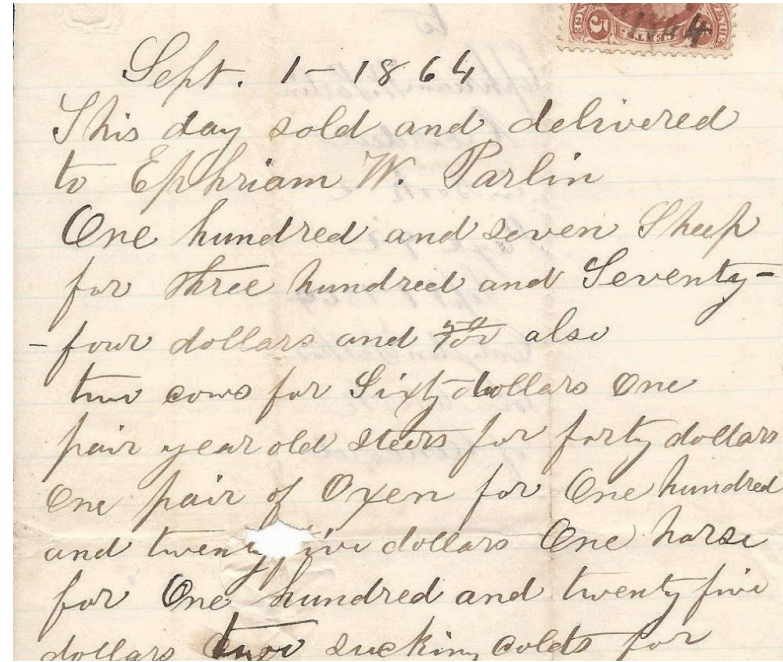 Sept. 1 - 1864
This day sold and delivered
to Ephriam W. Parlin
One hundred and seven Sheep
for three hundred and Seventy-
-four dollars and 50/100 also
two cows for Sixty dollars One
pair year old Steers for forty dollars
One pair of Oxen for One hundred
and twenty five dollars One horse
for One hundred and twenty five
dollars two sucking colts for